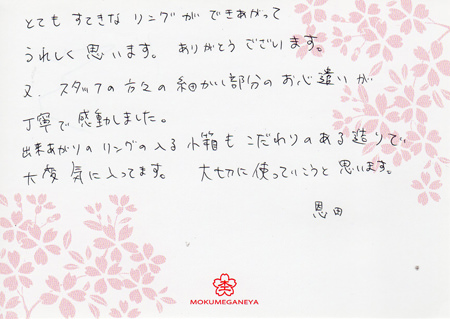 とても すてきな リングが できあがって
うれしく 思います。 ありがとう ございます。
又、スタッフの方々の細かい部分のお心遣いが
丁寧で感動しました。
出来あがりのリングの入る小箱もこだわりのある造りで、
大変 気に入ってます。 大切に使っていこうと思います。
恩田
MOKUMEGANEYA